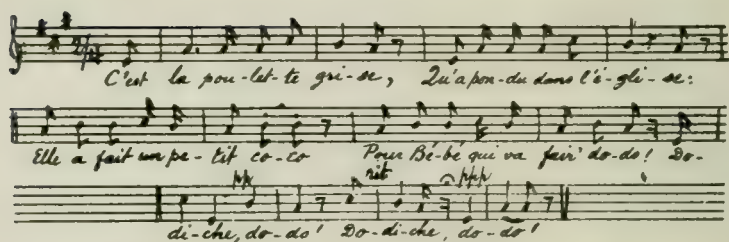 2/4
C'est la pou-let-te gri-se, Qu'a pon-du dans l'é-gli-se:
Elle a fait un pe-tit co-co Pour Bé-bé qui va fair' do-do! Do-
pp rit ppp
di-che, do-do! Do-di-che, do-do!